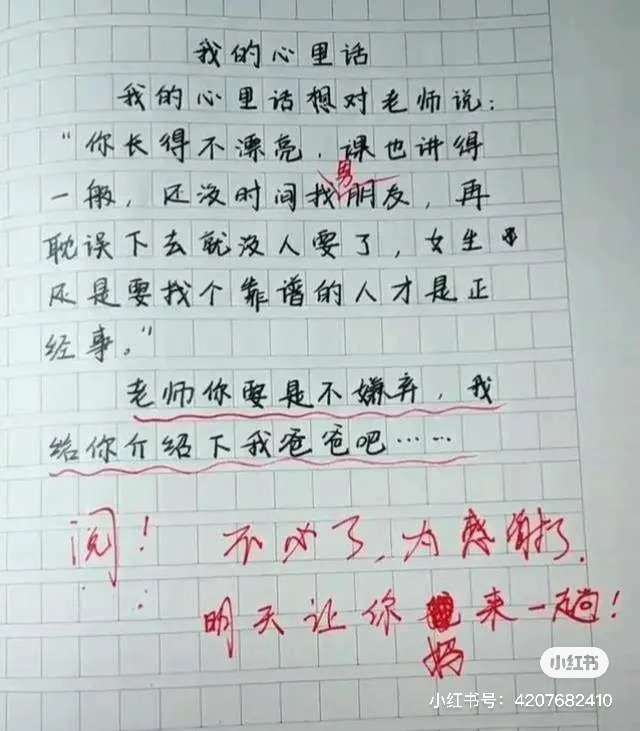 我的心里话
我的心里话想对老师说：
“你长得不漂亮，课也讲得
男
一般，还没时间找朋友，再
耽误下去就没人要了，女生
还是要找个靠谱的人才是正
经事。”
老师你要是不嫌弃，我
给你介绍下我爸爸吧……
阅！ 不必了，太感谢了，
明天让你来一趟！
妈
小红书
小红书号：4207682410